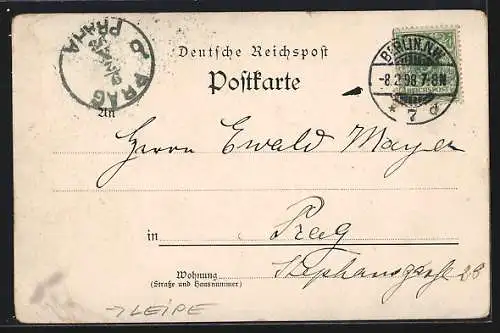 PRAG PRAHA
Deutsche Reichspost
Postkarte
BERLIN, N.W.
-8.2.98.7-8N.
* 7 d
REICHSPOST
An
Herrn Ewald Mayer
in Prag
Wohnung
(Straße und Hausnummer)
Stephansgasse 28
→ LEIPE